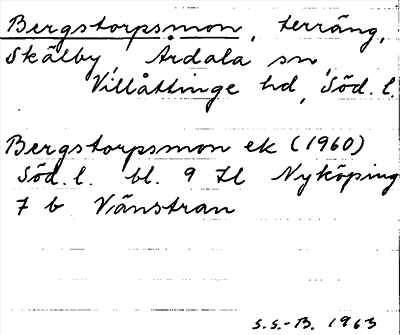 Bergstorpsmon, terräng,
Skälby, Årdala sn,
Villåttinge hd, Söd. l.
Bergstorpsmon ek (1960)
Söd. l. bl. 9 H Nyköping
7 b Vänstran
S.S.-B. 1963